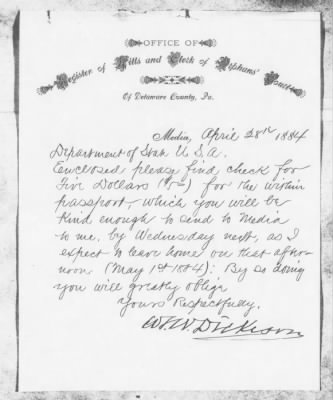 OFFICE OF
Register of Wills and Clerk of Orphans' Court
Of Delaware County, Pa.
Media, April 28th 1884
Department of State U.S.A.
Enclosed please find check for
Five Dollars ($5—) for the within
passport, which you will be
kind enough to send to Media
to me, by Wednesday next, as I
expect to leave home on that after-
noon (May 1st 1884): By so doing
you will greatly oblige
Yours Respectfully.
W.W. Dickeson